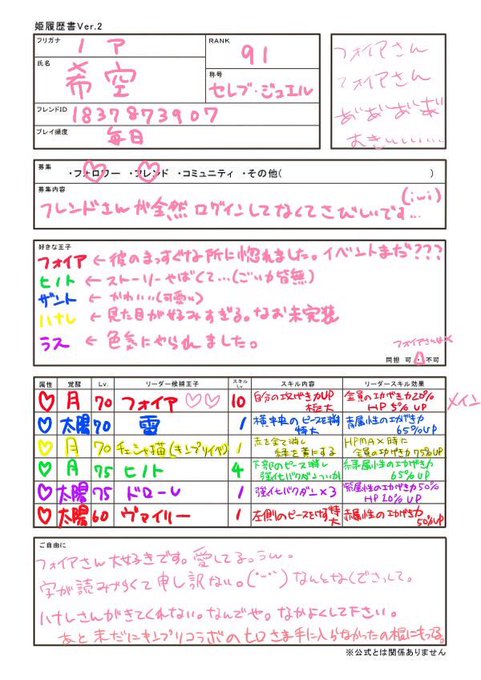 姫履歴書Ver.2
フリガナ ノア
氏名 希空
RANK 91
称号 セレブ・ジュエル
フレンドID 1837873907
プレイ頻度 毎日
フォイアさん
フォイアさん
あ゛あ゛あ゛あ゛
募集
・フォロワー ・フレンド ・コミュニティ ・その他( )
募集内容
フレンドさんが全然ログインしてなくてさびしいです…(;ω;)
好きな王子
フォイア ← 彼のまっすぐな所に惚れました。イベントまだ???
ヒノト ← ストーリーやばくて…(ごいか皆無)
ザント ← かわいい(可愛い)
ハナレ ← 見た目が好みすぎる。なお未実装
ラス ← 色気にやられました。
フォイアさんは×
同担 可 ・ 不可
属性 覚醒 Lv. リーダー候補王子 スキルLv スキル内容 リーダースキル効果
♡ 月 70 フォイア♡♡ 10 自分の攻げき力UP極大 全員のこうげき力20% HP5%UP メイン
♡ 太陽 70 雷 1 横中央のピースを消す特大 青属性のこうげき力65%UP
♡ 月 70 チェシャ猫(キンプリイベ) 1 赤を全て消し緑を黄にする HPMAX時に全員のこうげき力75%UP
♡ 月 75 ヒノト 4 下部のピース消し強化バクダン 緑属性のこうげき力65%UP
♡ 太陽 75 ドローレ 1 強化バクダン×3 紫属性のこうげき力50% HP20%UP
♡ 太陽 60 ヴァイリー 1 左側のピースをけす特大 赤属性のこうげき力50%UP
ご自由に
フォイアさん大好きです。愛してる。うん。
字が読みづらくて申し訳ない。(´･-･`)なんとなくでさっして。
ハナレさんがきてくれない。なんでや。なかよくして下さい。
あと未だにキンプリコラボのヒロさま手に入らなかったの根にもってる。
※公式とは関係ありません